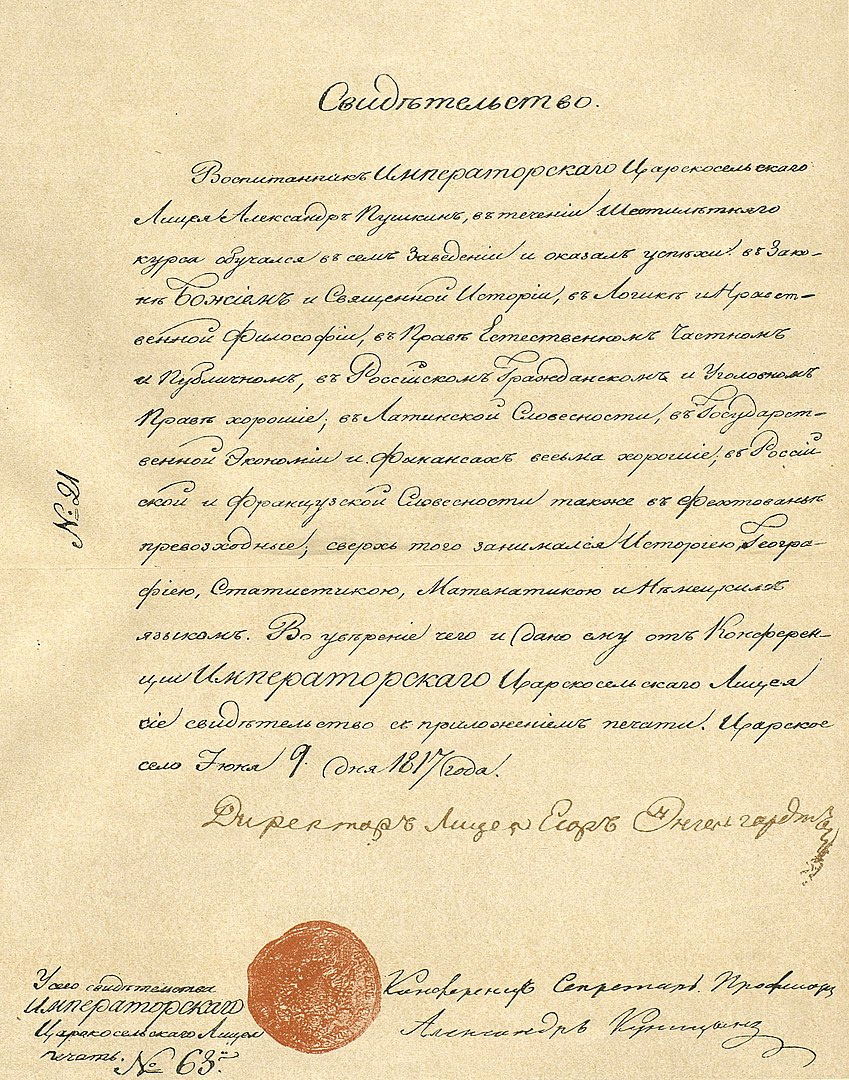 Свидѣтельство.
Воспитанникъ Императорскаго Царскосельскаго
Лицея Александръ Пушкинъ, въ теченіи Шестилѣтняго
курса обучался въ семъ Заведеніи и оказалъ успѣхи: въ Зако-
нѣ Божіемъ и Священной Исторіи, въ Логикѣ и Нравст-
венной Философіи, въ Правѣ Естественномъ Частномъ
и Публичномъ, въ Россійскомъ Гражданскомъ и Уголовномъ
Правѣ хорошіе; въ Латинской Словесности, въ Государст-
венной Экономіи и Финансахъ весьма хорошіе; въ Россій
ской и Французской Словесности также въ Фехтованьи
превозходные; сверхъ того занимался Исторіею, Геогра-
фіею, Статистикою, Математикою и Нѣмецкимъ
языкомъ. Во увѣреніе чего и дано ему отъ Конферен-
ціи Императорскаго Царскосельскаго Лицея
сіе свидѣтельство съ приложеніемъ печати. Царское
село Іюня 9 дня 1817 года.
Директоръ Лицея Егоръ Энгельгардтъ
№ 21
У сего свидѣтельства
Императорскаго
Царскосельскаго Лицея
печать.
№ 63.
Конференцъ Секретарь Профессоръ
Александръ Куницынъ